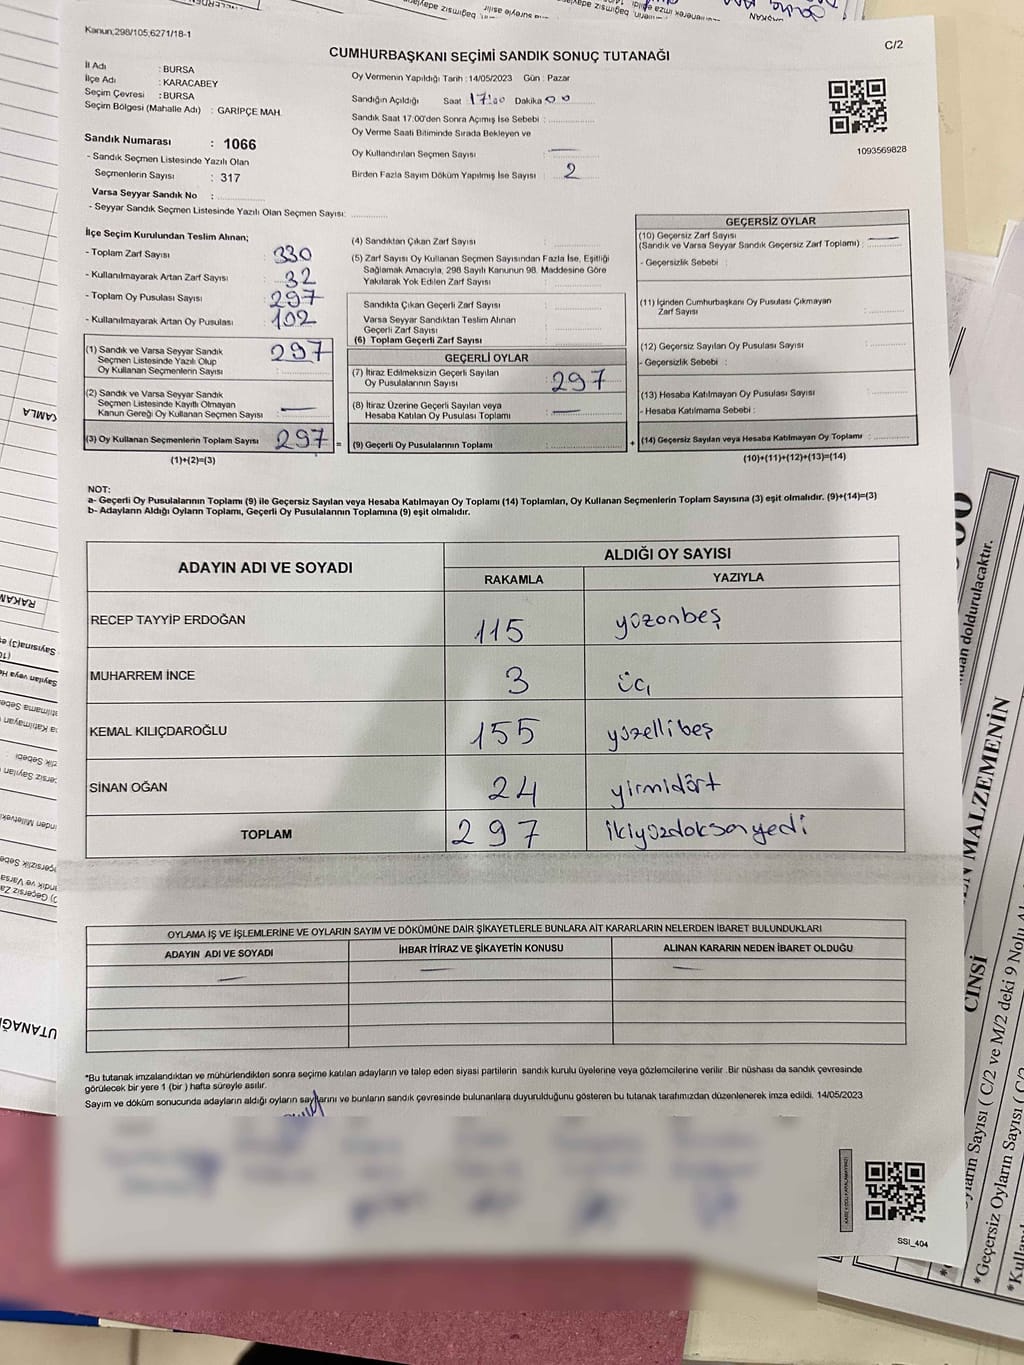 Kanun;298/105,6271/18-1
C/2
CUMHURBAŞKANI SEÇİMİ SANDIK SONUÇ TUTANAĞI
İl Adı : BURSA
İlçe Adı : KARACABEY
Seçim Çevresi : BURSA
Seçim Bölgesi (Mahalle Adı) : GARİPÇE MAH.
Sandık Numarası : 1066
- Sandık Seçmen Listesinde Yazılı Olan
Seçmenlerin Sayısı : 317
Varsa Seyyar Sandık No :
- Seyyar Sandık Seçmen Listesinde Yazılı Olan Seçmen Sayısı:
Oy Vermenin Yapıldığı Tarih : 14/05/2023 Gün : Pazar
Sandığın Açıldığı Saat 17:00 Dakika 00
Sandık Saat 17:00'den Sonra Açımış İse Sebebi :
Oy Verme Saati Bitiminde Sırada Bekleyen ve
Oy Kullandırılan Seçmen Sayısı : —
Birden Fazla Sayım Döküm Yapılmış İse Sayısı : 2
1093569828
İlçe Seçim Kurulundan Teslim Alınan;
- Toplam Zarf Sayısı : 330
- Kullanılmayarak Artan Zarf Sayısı : 32
- Toplam Oy Pusulası Sayısı : 297
- Kullanılmayarak Artan Oy Pusulası : 102
(1) Sandık ve Varsa Seyyar Sandık
Seçmen Listesinde Yazılı Olup
Oy Kullanan Seçmenlerin Sayısı : 297
(2) Sandık ve Varsa Seyyar Sandık
Seçmen Listesinde Kayıtlı Olmayan
Kanun Gereği Oy Kullanan Seçmen Sayısı : —
(3) Oy Kullanan Seçmenlerin Toplam Sayısı : 297 =
(1)+(2)=(3)
(4) Sandıktan Çıkan Zarf Sayısı :
(5) Zarf Sayısı Oy Kullanan Seçmen Sayısından Fazla İse, Eşitliği
Sağlamak Amacıyla, 298 Sayılı Kanunun 98. Maddesine Göre
Yakılarak Yok Edilen Zarf Sayısı :
Sandıkta Çıkan Geçerli Zarf Sayısı :
Varsa Seyyar Sandıktan Teslim Alınan
Geçerli Zarf Sayısı :
(6) Toplam Geçerli Zarf Sayısı :
GEÇERLİ OYLAR
(7) İtiraz Edilmeksizin Geçerli Sayılan
Oy Pusulalarının Sayısı : 297
(8) İtiraz Üzerine Geçerli Sayılan veya
Hesaba Katılan Oy Pusulası Toplamı : —
(9) Geçerli Oy Pusulalarının Toplamı : +
GEÇERSİZ OYLAR
(10) Geçersiz Zarf Sayısı
(Sandık ve Varsa Seyyar Sandık Geçersiz Zarf Toplamı) : —
- Geçersizlik Sebebi :
(11) İçinden Cumhurbaşkanı Oy Pusulası Çıkmayan
Zarf Sayısı :
(12) Geçersiz Sayılan Oy Pusulası Sayısı :
- Geçersizlik Sebebi :
(13) Hesaba Katılmayan Oy Pusulası Sayısı :
- Hesaba Katılmama Sebebi :
(14) Geçersiz Sayılan veya Hesaba Katılmayan Oy Toplamı :
(10)+(11)+(12)+(13)=(14)
NOT:
a- Geçerli Oy Pusulalarının Toplamı (9) ile Geçersiz Sayılan veya Hesaba Katılmayan Oy Toplamı (14) Toplamları, Oy Kullanan Seçmenlerin Toplam Sayısına (3) eşit olmalıdır. (9)+(14)=(3)
b- Adayların Aldığı Oyların Toplamı, Geçerli Oy Pusulalarının Toplamına (9) eşit olmalıdır.
ADAYIN ADI VE SOYADI
ALDIĞI OY SAYISI
RAKAMLA YAZIYLA
RECEP TAYYİP ERDOĞAN 115 yüzonbeş
MUHARREM İNCE 3 üç
KEMAL KILIÇDAROĞLU 155 yüzellibeş
SİNAN OĞAN 24 yirmidört
TOPLAM 297 ikiyüzdoksanyedi
OYLAMA İŞ VE İŞLEMLERİNE VE OYLARIN SAYIM VE DÖKÜMÜNE DAİR ŞİKAYETLERLE BUNLARA AİT KARARLARIN NELERDEN İBARET BULUNDUKLARI
ADAYIN ADI VE SOYADI İHBAR İTİRAZ VE ŞİKAYETİN KONUSU ALINAN KARARIN NEDEN İBARET OLDUĞU
— — —
*Bu tutanak imzalandıktan ve mühürlendikten sonra seçime katılan adayların ve talep eden siyasi partilerin sandık kurulu üyelerine veya gözlemcilerine verilir .Bir nüshası da sandık çevresinde
görülecek bir yere 1 (bir ) hafta süreyle asılır.
Sayım ve döküm sonucunda adayların aldığı oyların sayılarını ve bunların sandık çevresinde bulunanlara duyurulduğunu gösteren bu tutanak tarafımızdan düzenlenerek imza edildi. 14/05/2023
SSI_404
UTANAĞI
RAKAM
EN MALZEMENİN
CİNSİ
doldurulacaktır.
*Geçersiz Oyların Sayısı